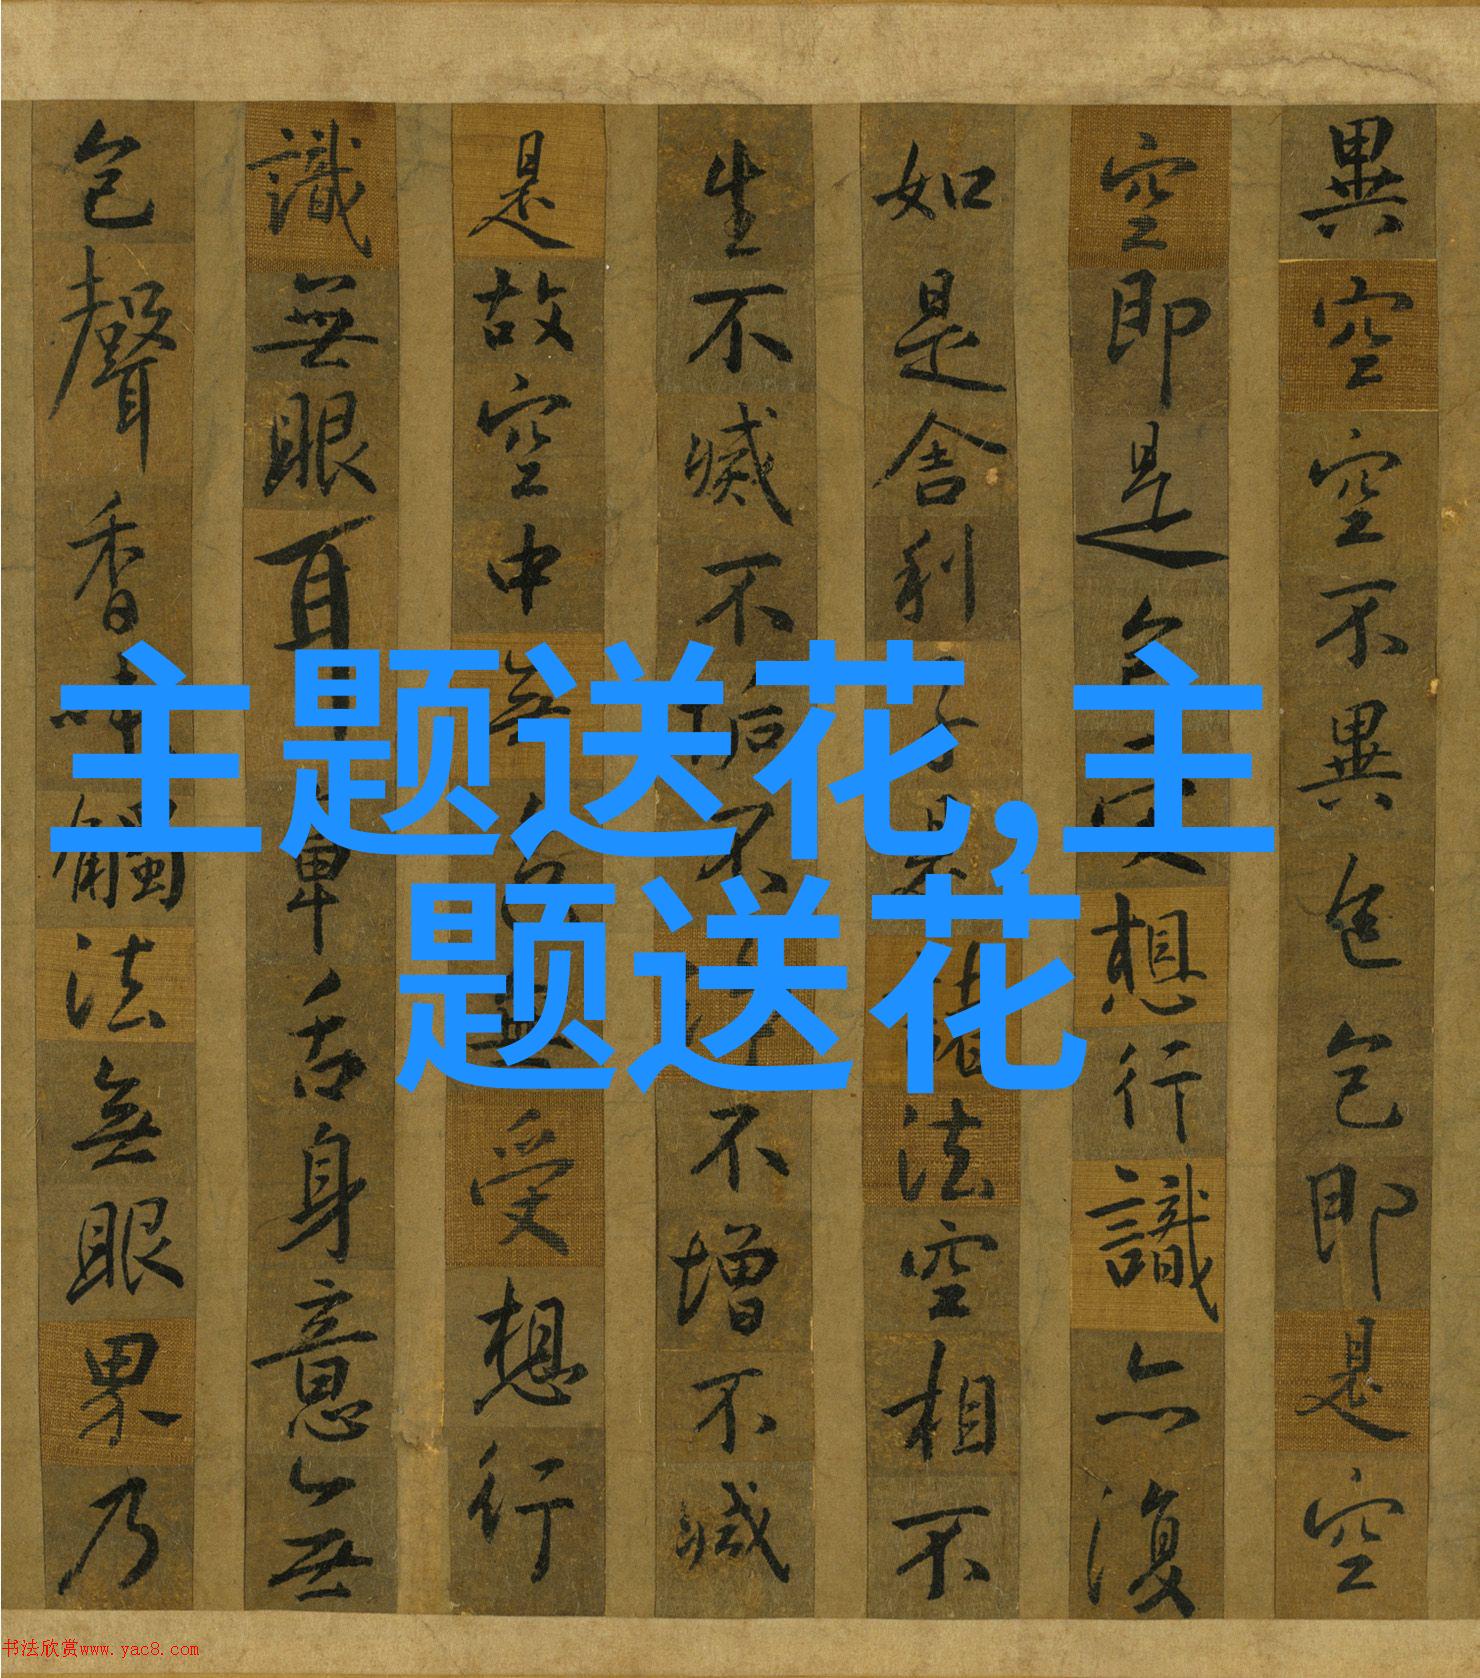 異空空不異色色即是空
空即是色受想行識亦復
如是舍利子是諸法空相不
生不滅不垢不淨不增不減
是故空中無色無受想行
識無眼耳鼻舌身意無
色聲香味觸法無眼界乃
主题送花,主
题送花
书法欣赏www.yac8.com